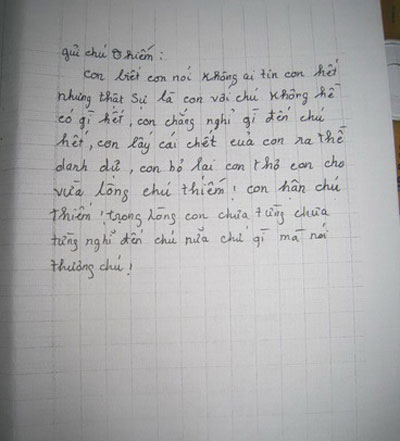 gửi chú Thiếm :
con biết con nói không ai tin con hết
nhưng thật sự là con với chú không hề
có gì hết, con chẳng nghỉ gì đến chú
hết, con lấy cái chết của con ra thề
danh dử, con bỏ lại con thơ con cho
vừa lòng chú thiếm! con hận chú
thiếm! trong lòng con chưa từng chưa
từng nghĩ đến chú nữa chứ gì mà nói
thưởng chú!